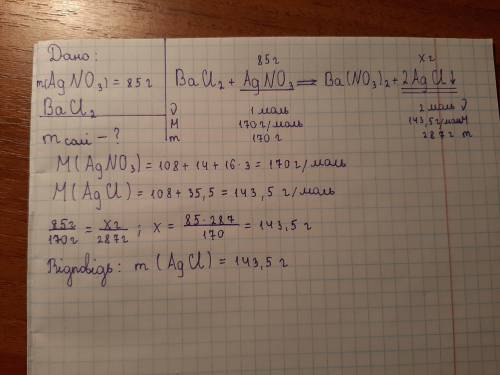 Дано:
m(AgNO₃) = 85 г
BaCl₂
m солі – ?
85 г    x г
BaCl₂ + AgNO₃ ⟹ Ba(NO₃)₂ + 2AgCl↓
ν    1 моль    2 моль ν
M    170 г/моль    143,5 г/моль M
m    170 г    287 г m
M(AgNO₃) = 108 + 14 + 16·3 = 170 г/моль
M(AgCl) = 108 + 35,5 = 143,5 г/моль
85г/170г = xг/287г ; x = 85·287/170 = 143,5 г
Відповідь: m (AgCl) = 143,5 г